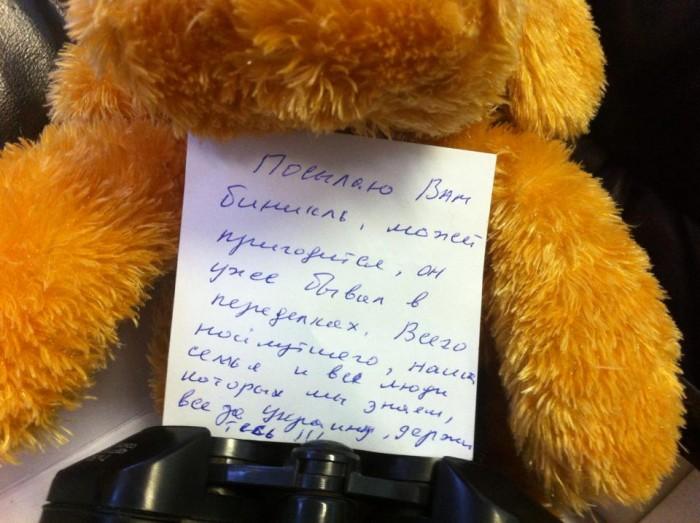 Посылаю Вам
биникль, может
пригодится, он
уже бывал в
переделках. Всего
наилучшего, наша
семья и все люди
которых мы знаем,
все за украину, держи
тесь !!!